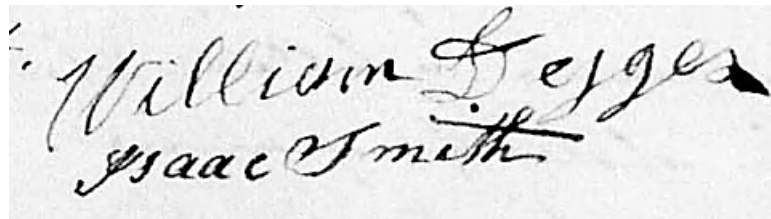 William Degges
Isaac Smith